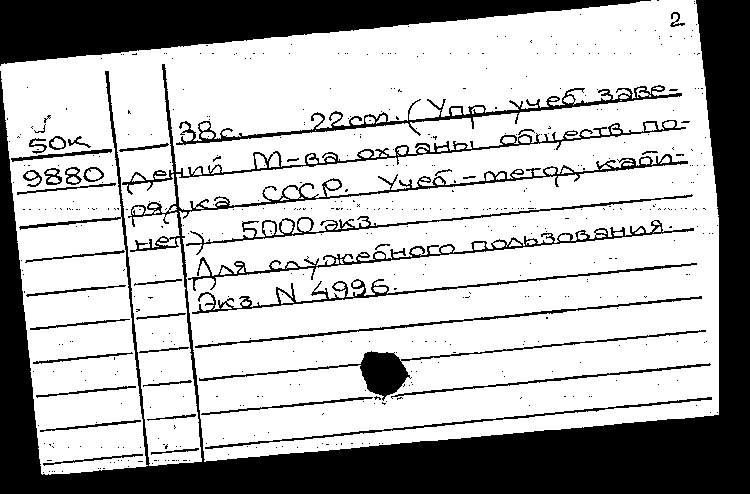 2
50к
9880
38с. 22см. (Упр. учеб. заве-
дений М-ва охраны обществ. по-
рядка СССР. Учеб.-метод. каби-
нет). 5000 экз.
Для служебного пользования.
Экз. N 4996.